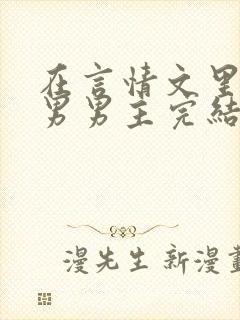 在言情文里
男男主完结
漫先生 新漫画